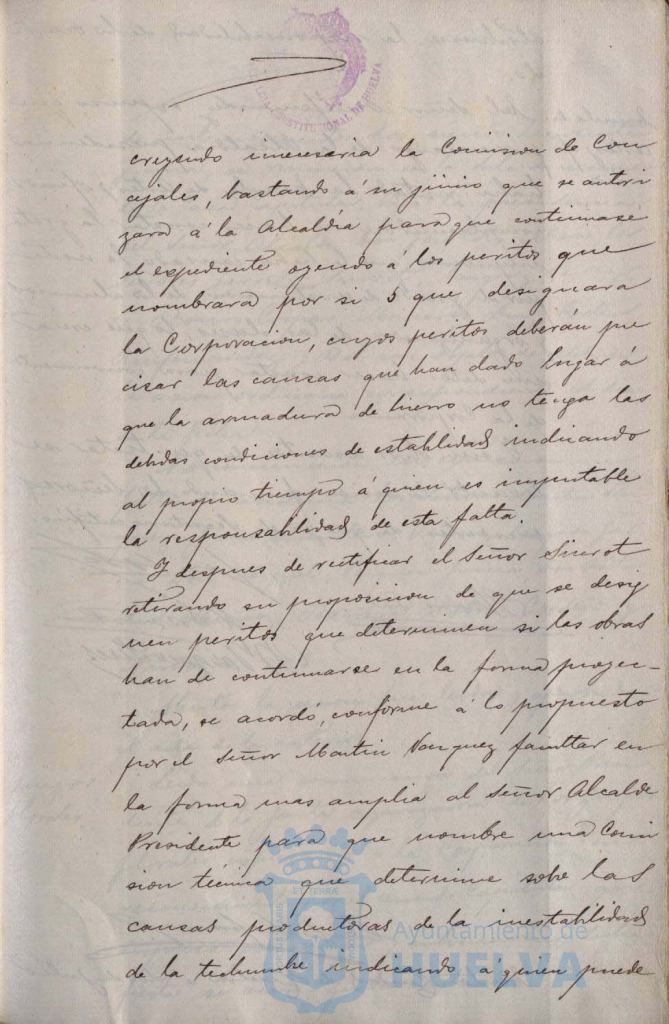 CONSTITUCIONAL DE HUELVA
creyendo innecesaria la Comision de Con
cejales, bastando á su juicio que se autori
zara á la Alcaldía para que continuase
el expediente oyendo á los peritos que
nombrara por si ó que designara
la Corporacion, cuyos peritos deberán pre
cisar las causas que han dado lugar á
que la armadura de hierro no tenga las
debidas condiciones de estabilidad indicando
al propio tiempo á quien es imputable
la responsabilidad de esta falta.
Y despues de rectificar el Señor
retirando su proposicion de que se desig
nen peritos que determinen si las obras
han de continuarse en la forma proyec-
tada, se acordó, conforme á lo propuesto
por el Señor Martin Vazquez facultar en
la forma mas amplia al Señor Alcalde
Presidente para que nombre una Comi
sion técnica que determine sobre las
causas productoras de la inestabilidad
de la techumbre indicando á quien puede
Ayuntamiento de
HUELVA